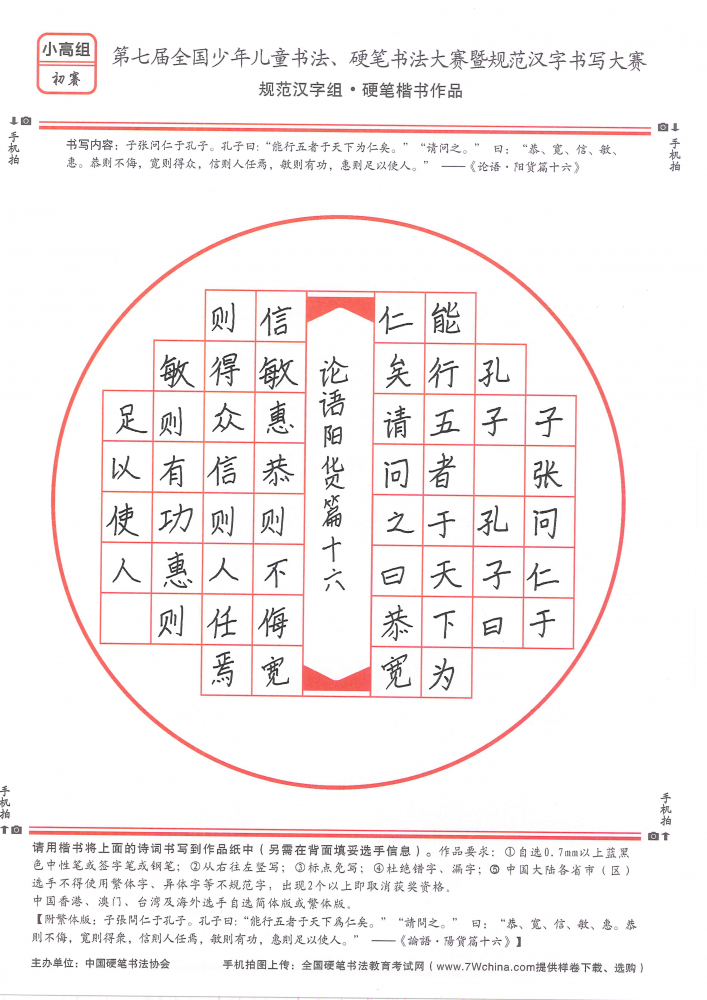 小高组
初赛
第七届全国少年儿童书法、硬笔书法大赛暨规范汉字书写大赛
规范汉字组·硬笔楷书作品
手机拍
手机拍
书写内容：子张问仁于孔子。孔子曰：“能行五者于天下为仁矣。”“请问之。” 曰：“恭、宽、信、敏、
惠。恭则不侮，宽则得众，信则人任焉，敏则有功，惠则足以使人。” ——《论语·阳货篇十六》
子张问仁于
孔子 孔子曰
能行五者于天下为
仁矣请问之曰恭宽
论语阳货篇十六
信敏惠恭则不侮宽
则得众信则人任焉
敏则有功惠则
足以使人
手机拍
手机拍
请用楷书将上面的诗词书写到作品纸中（另需在背面填妥选手信息）。作品要求：①自选0.7mm以上蓝黑
色中性笔或签字笔或钢笔；②从右往左竖写；③标点免写；④杜绝错字、漏字；⑤中国大陆各省市（区）
选手不得使用繁体字、异体字等不规范字，出现2个以上即取消获奖资格。
中国香港、澳门、台湾及海外选手自选简体版或繁体版。
【附繁体版：子張問仁于孔子。孔子曰：“能行五者于天下爲仁矣。”“請問之。” 曰：“恭、寬、信、敏、惠。恭
則不侮，寬則得衆，信則人任焉，敏則有功，惠則足以使人。” ——《論語·陽貨篇十六》】
主办单位：中国硬笔书法协会
手机拍图上传：全国硬笔书法教育考试网（www.7Wchina.com提供样卷下载、选购）